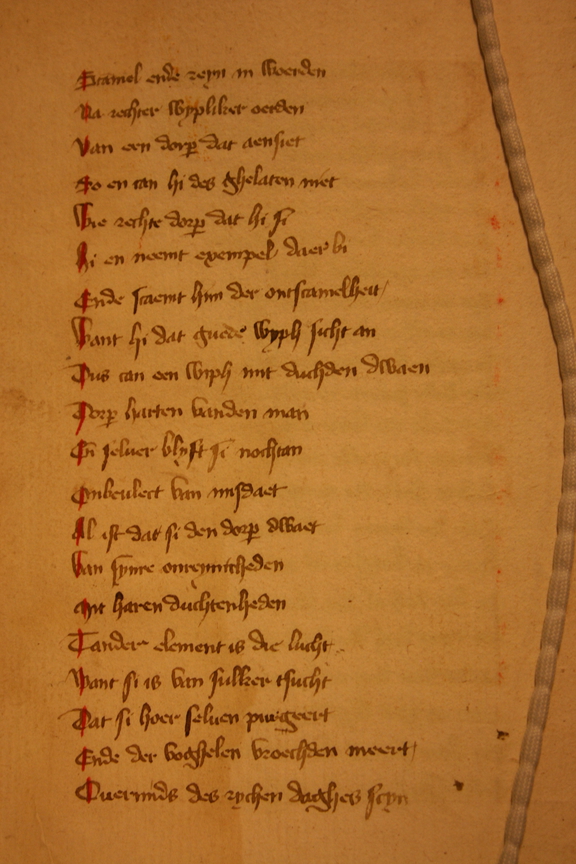 Scamel ende reyn in woerden
Na rechter wypliker oerden
Van een dorp dat aensiet
So en can hi des ghelaten niet
Wie rechte dorp dat hi si
Hi en neemt exempel daer bi
Ende scaemt him der ontscamelheit
Want hi dat guede wyph sicht an
Dus can een wiph mit duchden dwaen
Dorp harten vanden man
En seluer blyft si nochtan
Onbeulect van misdaet
Al ist dat si den dorp dwaet
Van synre onreynicheden
Mit haren duchtenheden
Tander element is die lucht
Want si is van sulker tsucht
Dat si hoer seluen purgeert
Ende der voghelen vroechden meert
Ouermids des rychen daghes scyn